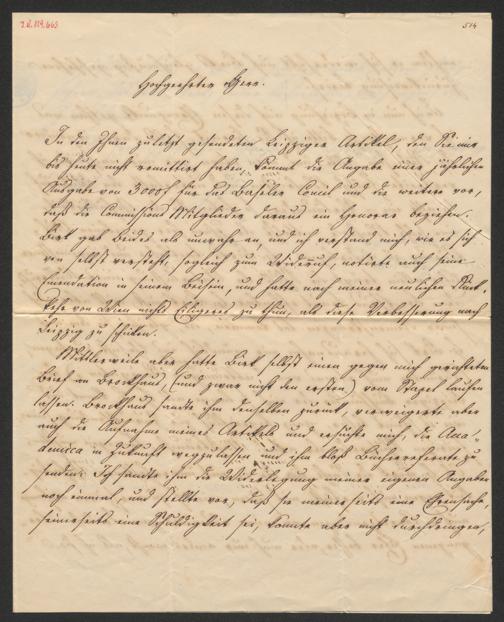 I.N. 119.663
514
Hochgeehrter Herr.
In den Ihnen zuletzt gesendeten Leipziger Artikel, den Sie mir
bis heute nicht remittirt haben, kommt die Angabe einer jährlichen
Ausgabe von 3000 f für das Basheler Concil und die weitere vor,
daß die Commissions Mitglieder daraus ein Honorar beziehen.
Birk gab Beides als unwahr an, und ich verstand mich, wie es sich
von selbst versteht, sogleich zum Widerruf, notirte auch seine
Emendation in seinem Beisein, und hatte nach meiner neulichen Rück-
kehr von Wien nichts Eiligeres zu thun, als diese Verbesserung nach
Leipzig zu schicken.
Mittlerweile aber hatte Birk selbst einen gegen mich gerichteten
Brief an Brockhaus, (und zwar nicht den ersten) vom Stapel laufen
lassen. Brockhaus sandte ihm denselben zurück, verweigerte aber
auch die Aufnahme meines Artikels und ersuchte mich, die Aca-
demica in Zukunft wegzulassen und ihm bloß Bücherreferate zu
senden. Ich sandte ihm die Widerlegung meiner eigenen Angaben
noch einmal, und stellte vor, daß es meinerseits eine Ehrensache,
seinerseits eine Schuldigkeit sei, konnte aber nicht durchdringen,